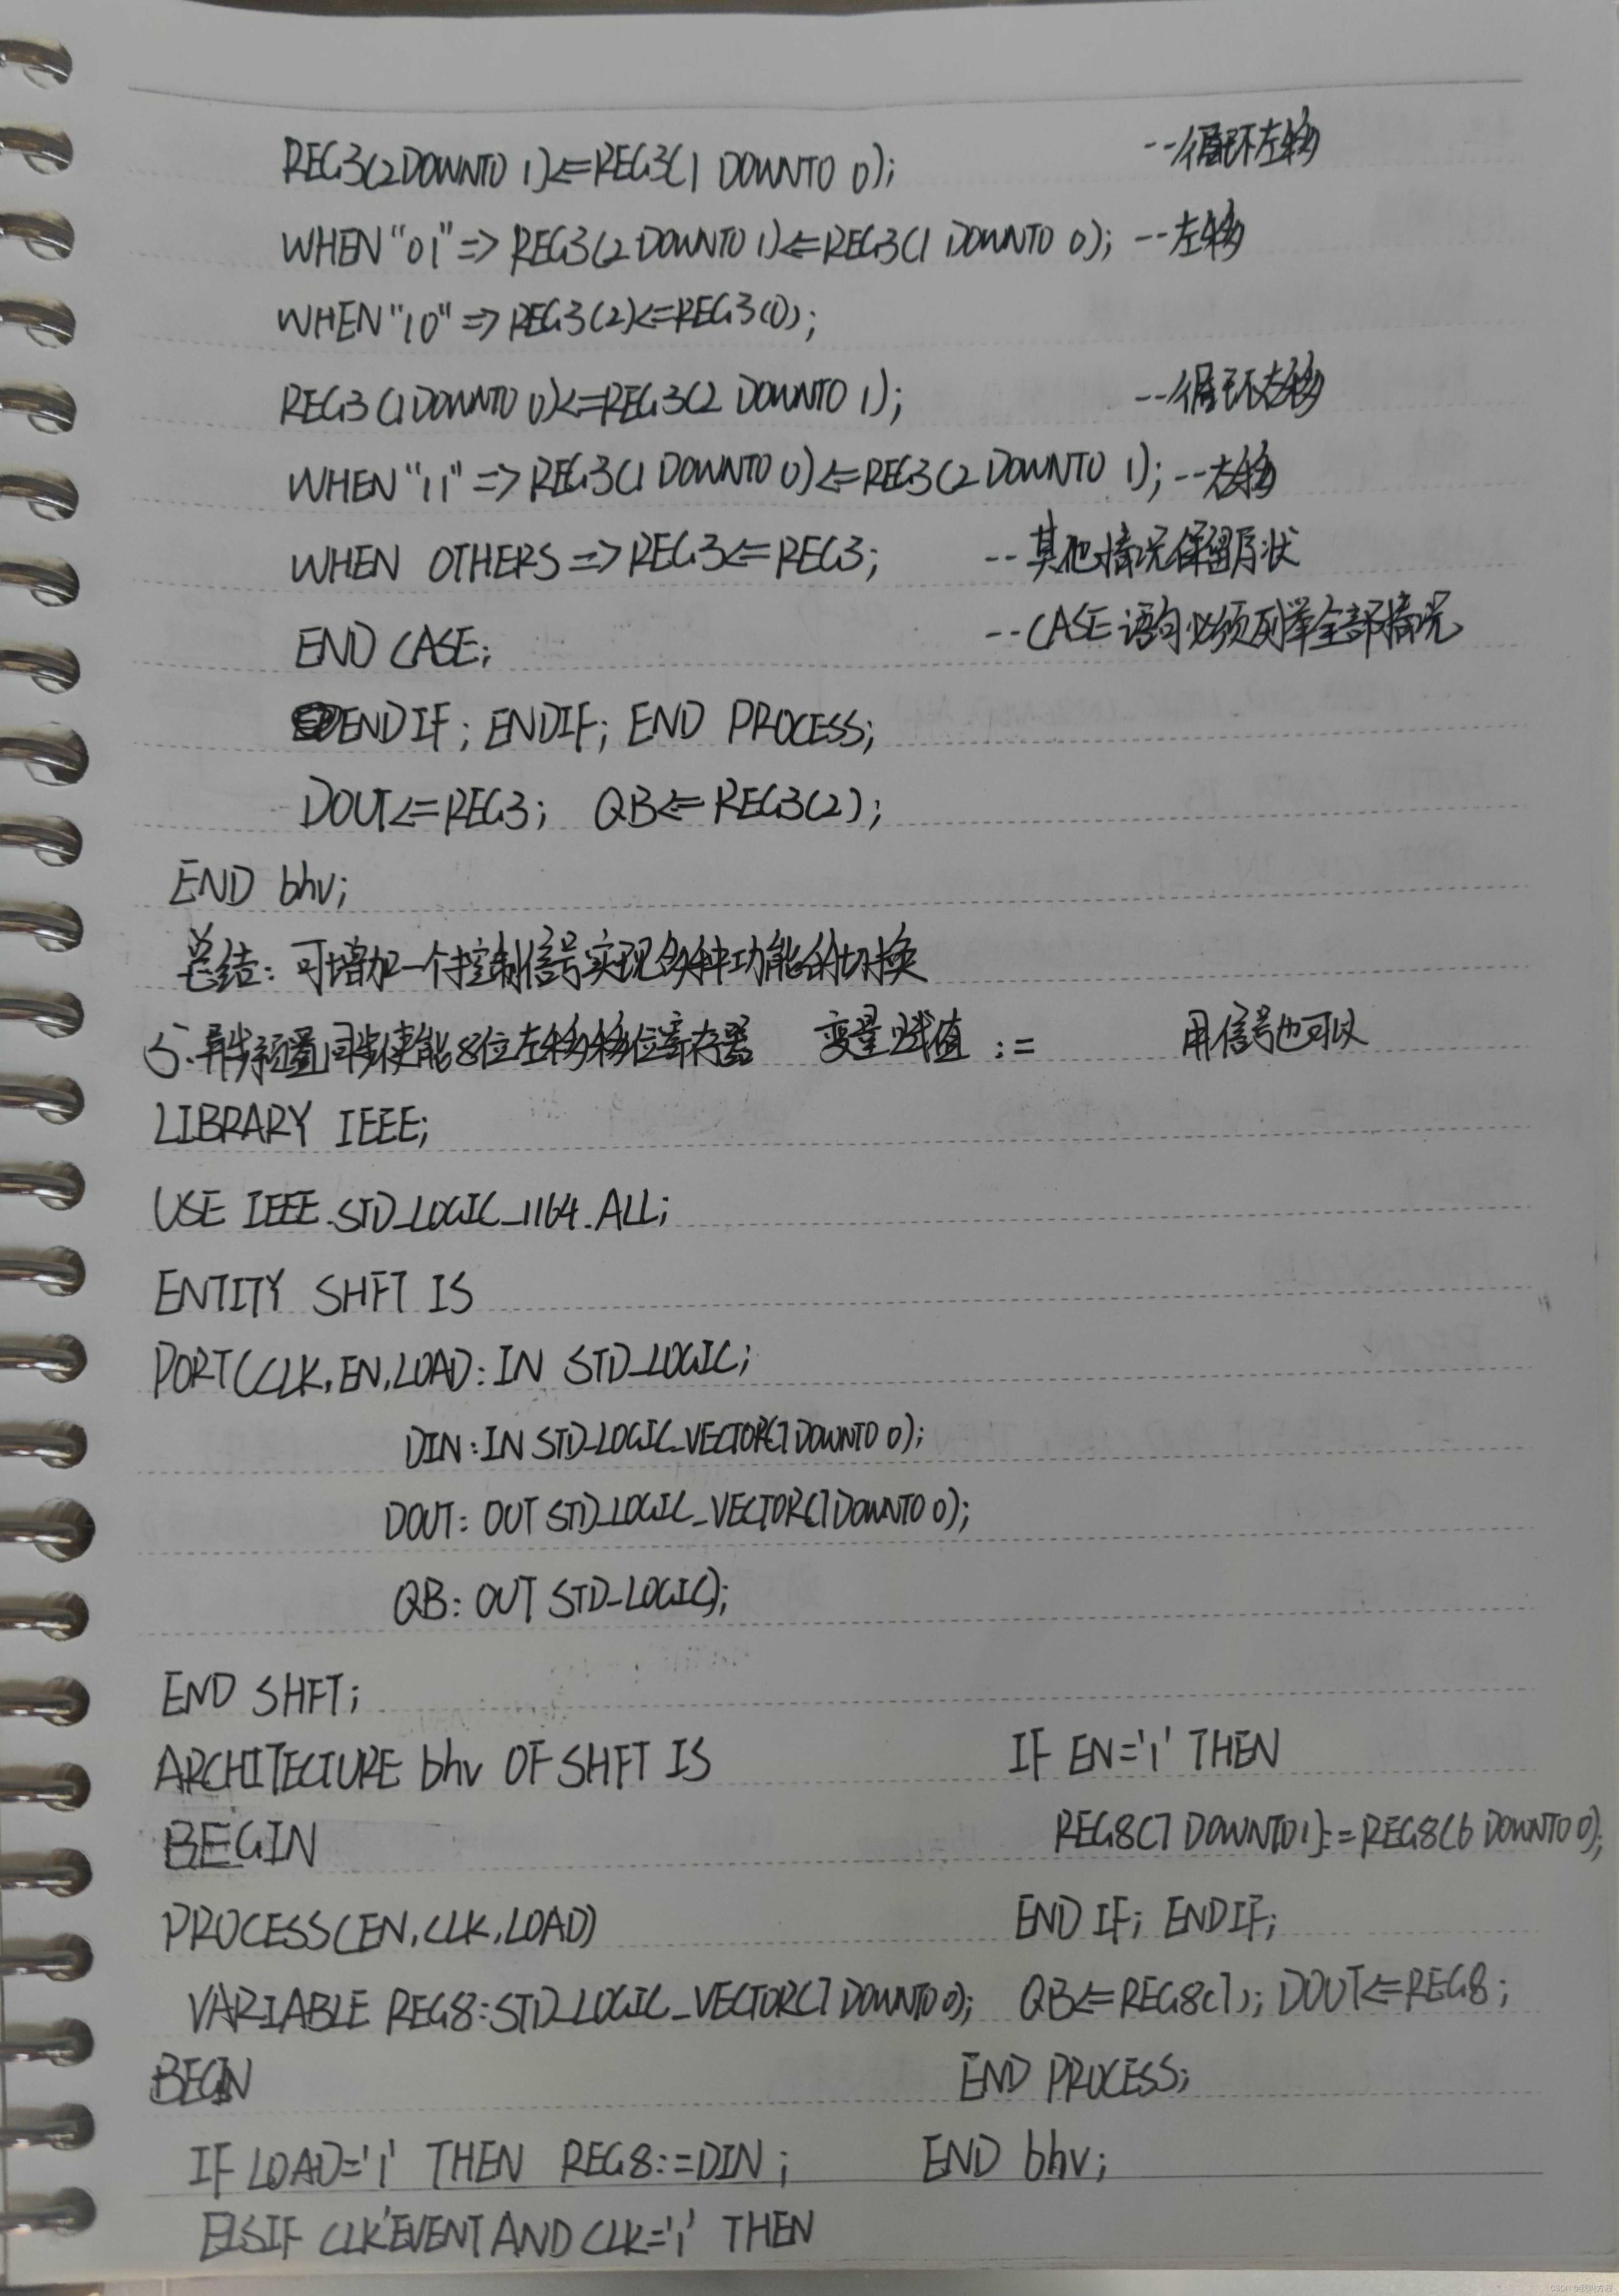 REG3(2 DOWNTO 1)<=REG3(1 DOWNTO 0); --循环左移
WHEN "01" => REG3(2 DOWNTO 1)<=REG3(1 DOWNTO 0); --左移
WHEN "10" => REG3(2)<=REG3(0);
REG3(1 DOWNTO 0)<=REG3(2 DOWNTO 1); --循环右移
WHEN "11" => REG3(1 DOWNTO 0)<=REG3(2 DOWNTO 1); --右移
WHEN OTHERS => REG3<=REG3; --其他情况保留原状
END CASE; --CASE语句必须列举全部情况
END IF; ENDIF; END PROCESS;
DOUT<=REG3; QB<=REG3(2);
END bhv;
总结: 可增加一个控制信号实现多种功能的切换
5. 异步预置同步使能8位左移移位寄存器 变量赋值 := 用信号也可以
LIBRARY IEEE;
USE IEEE.STD_LOGIC_1164.ALL;
ENTITY SHFT IS
PORT(CLK,EN,LOAD:IN STD_LOGIC;
DIN:IN STD_LOGIC_VECTOR(7 DOWNTO 0);
DOUT: OUT STD_LOGIC_VECTOR(7 DOWNTO 0);
QB: OUT STD_LOGIC);
END SHFT;
ARCHITECTURE bhv OF SHFT IS
BEGIN
PROCESS(EN,CLK,LOAD)
VARIABLE REG8:STD_LOGIC_VECTOR(7 DOWNTO 0);
BEGIN
IF LOAD='1' THEN REG8:=DIN;
ELSIF CLK'EVENT AND CLK='1' THEN
IF EN='1' THEN
REG8(7 DOWNTO 1):=REG8(6 DOWNTO 0);
END IF; ENDIF;
QB<=REG8(7); DOUT<=REG8;
END PROCESS;
END bhv;